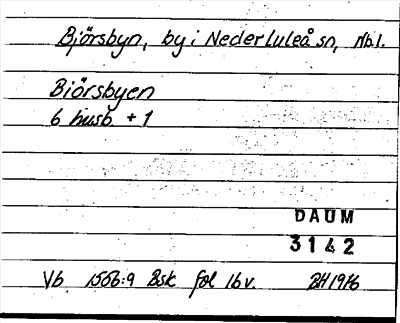 Björsbyn, by i Nederluleå sn, Nbl.
Biörsbyen
6 husb. + 1
DAUM
3142
Vb 1556:9 Bsk fol 16 v. BH 1976